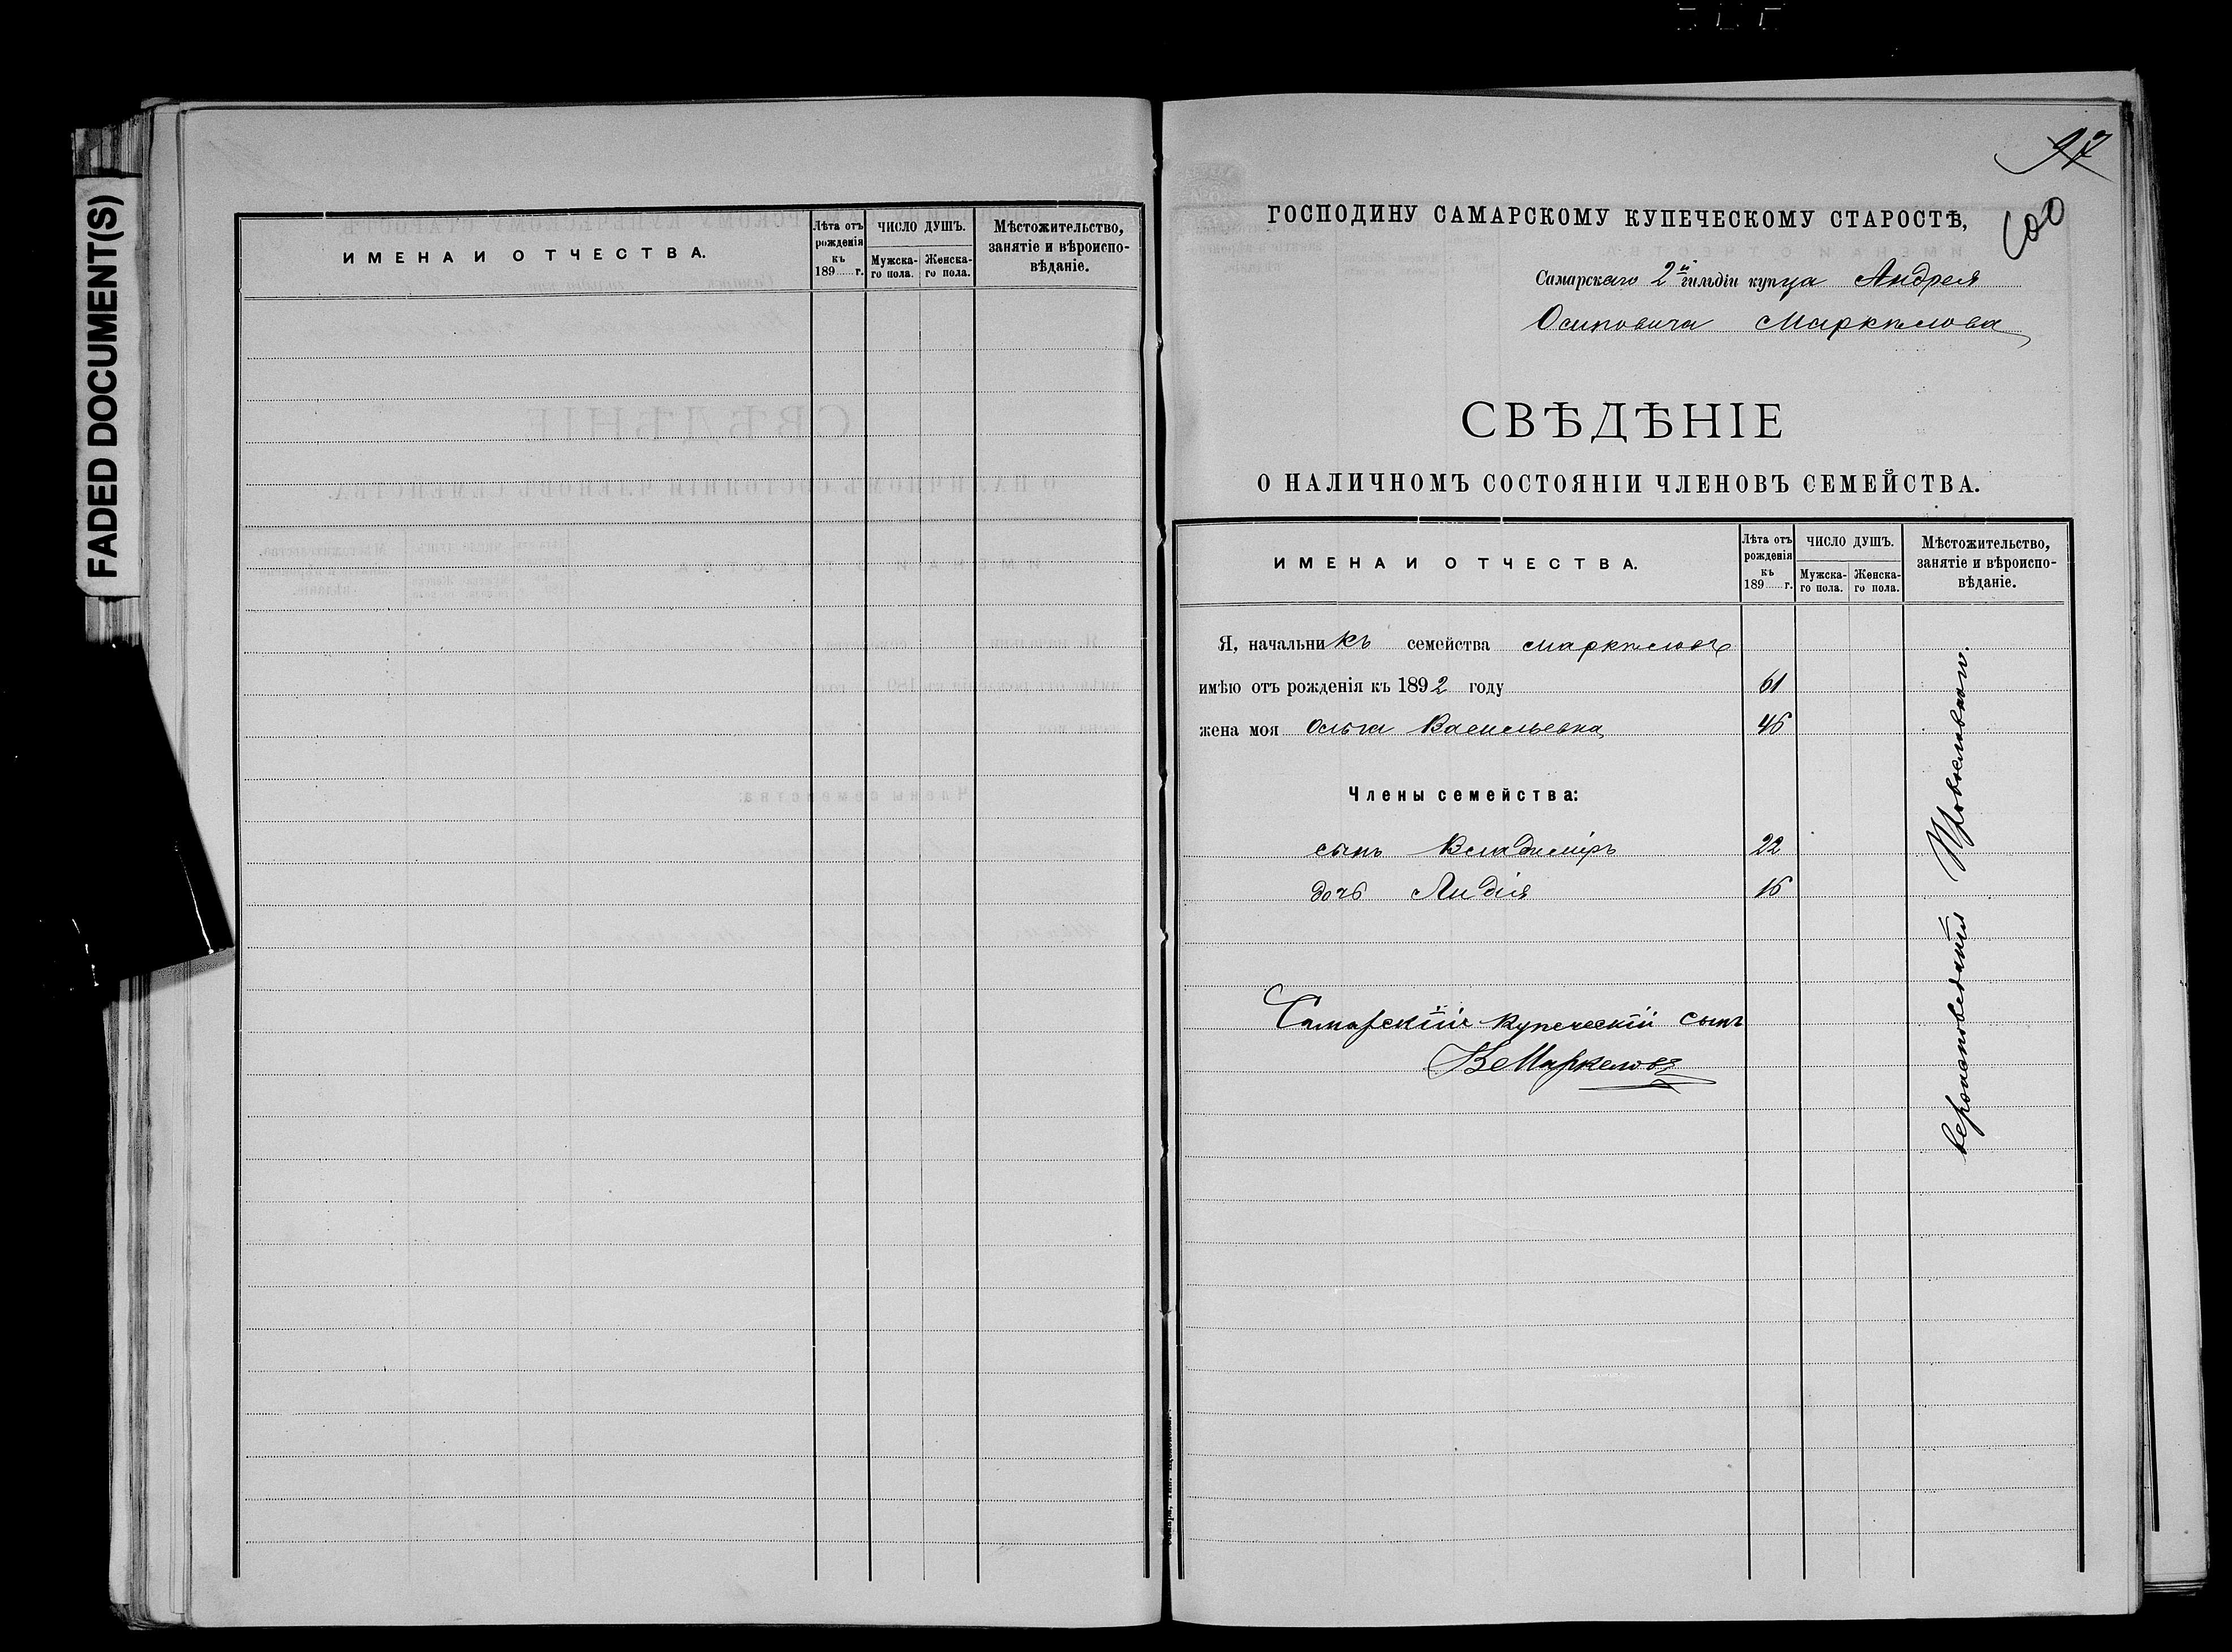 FADED DOCUMENT(S)
ИМЕНА И ОТЧЕСТВА.
Лѣта отъ рожденія къ 189 г.
ЧИСЛО ДУШЪ.
Мужска-го пола.
Женска-го пола.
Мѣстожительство,
занятіе и вѣроиспо-
вѣданіе.
97
100
ГОСПОДИНУ САМАРСКОМУ КУПЕЧЕСКОМУ СТАРОСТѢ,
Самарскаго 2й гильдіи купца Андрея
Осиповича Маркелова
СВѢДѢНІЕ
О НАЛИЧНОМЪ СОСТОЯНІИ ЧЛЕНОВЪ СЕМЕЙСТВА.
ИМЕНА И ОТЧЕСТВА.
Лѣта отъ рожденія къ 189 г.
ЧИСЛО ДУШЪ.
Мужска-го пола.
Женска-го пола.
Мѣстожительство,
занятіе и вѣроиспо-
вѣданіе.
Я, начальникъ семейства Маркеловъ
имѣю отъ рожденія къ 1892 году 61
жена моя Ольга Васильевна 46
Члены семейства:
сынъ Владиміръ 22
дочь Лидія 16
вероисповеданія Православнаго.
Самарскій Купеческій сынъ
В Маркеловъ